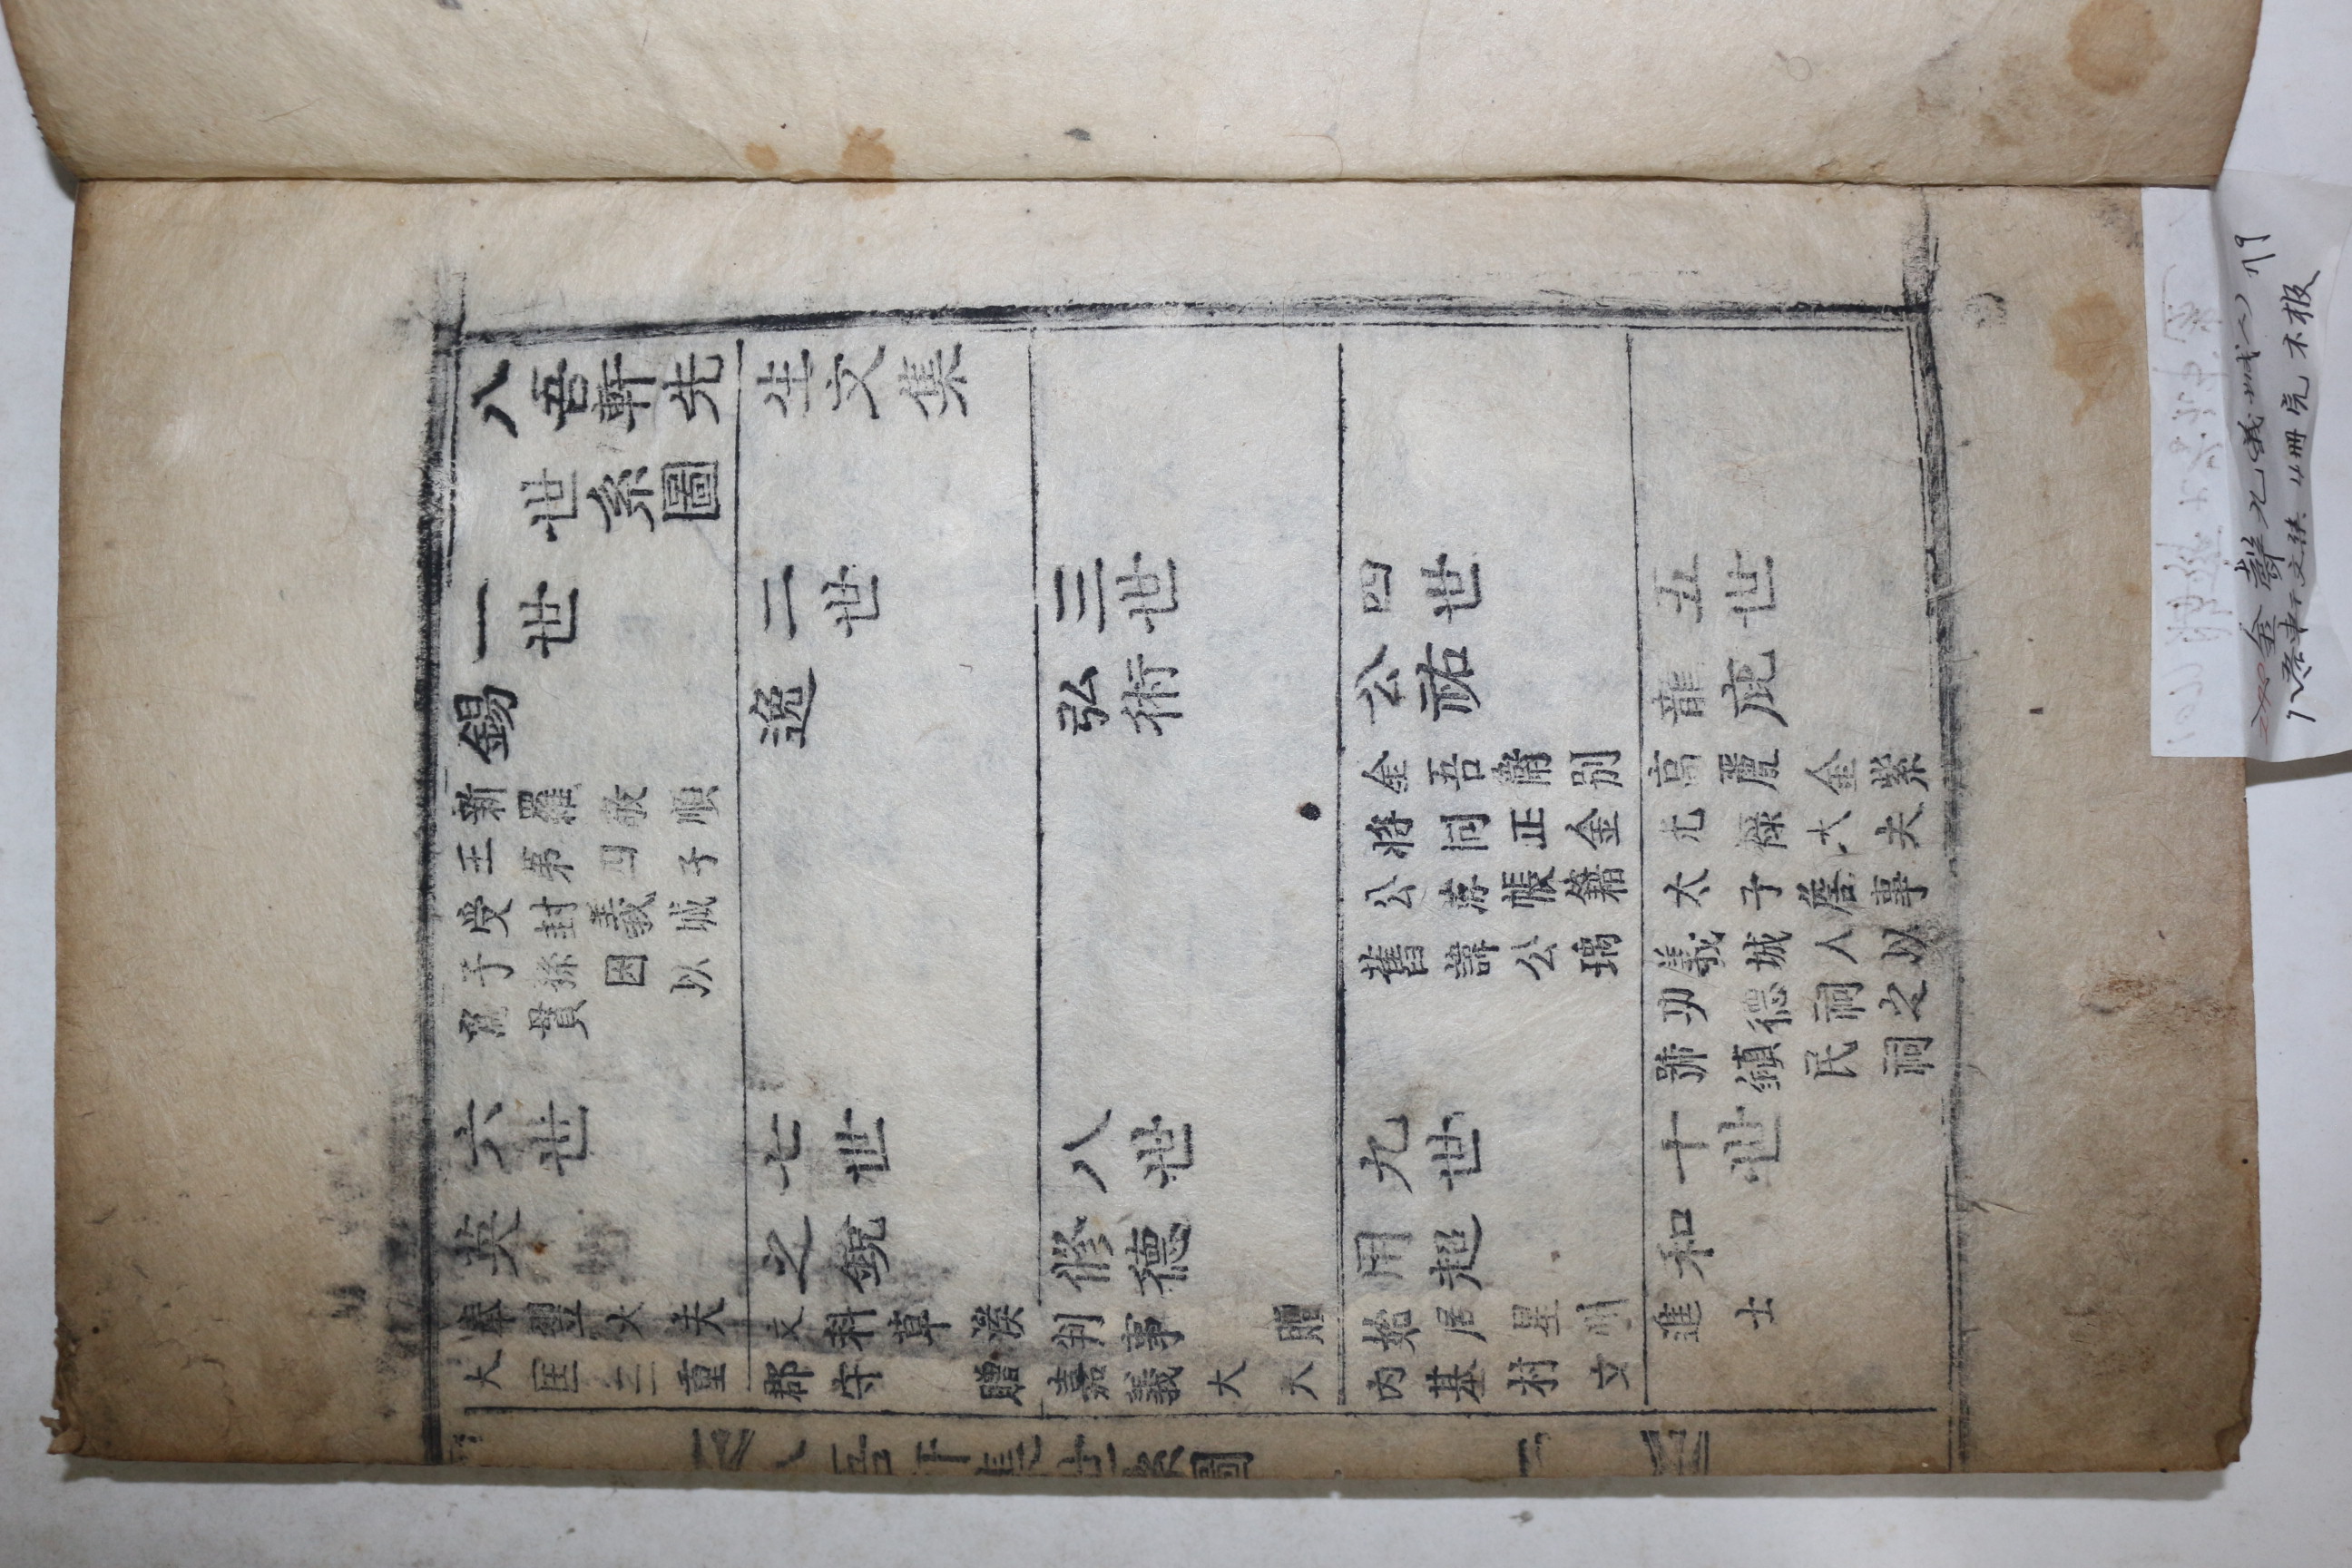 八吾軒先生文集
世系圖
一世
錫
新羅敬順
王第四子
受封義城
子孫因以
爲貫
二世
逸
三世
弘術
四世
公祐
金吾衛別
將同正金
公存帳籍
舊諱公瑀
五世
龍庇
高麗金紫
光祿大夫
太子詹事
義城人以
功德祠之
號鎮民祠
六世
英
奉翊大夫
大匡三重
七世
之銳
文科草溪
郡守 贈
八世
修德
判事 贈
嘉義大夫
九世
用超
始居星州
內基村文
十世
和
進士
金聲九(義城人) 79
八吾軒文集 4冊完 木板